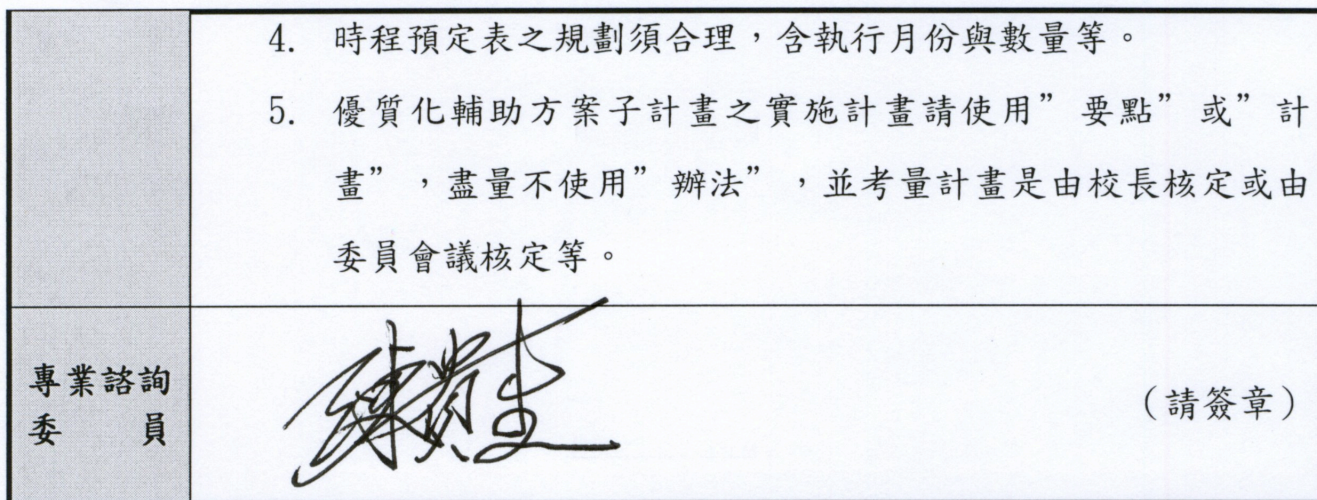 4. 時程預定表之規劃須合理，含執行月份與數量等。
5. 優質化輔助方案子計畫之實施計畫請使用”要點”或”計
畫”，盡量不使用”辦法”，並考量計畫是由校長核定或由
委員會議核定等。
專業諮詢
委員
（請簽章）